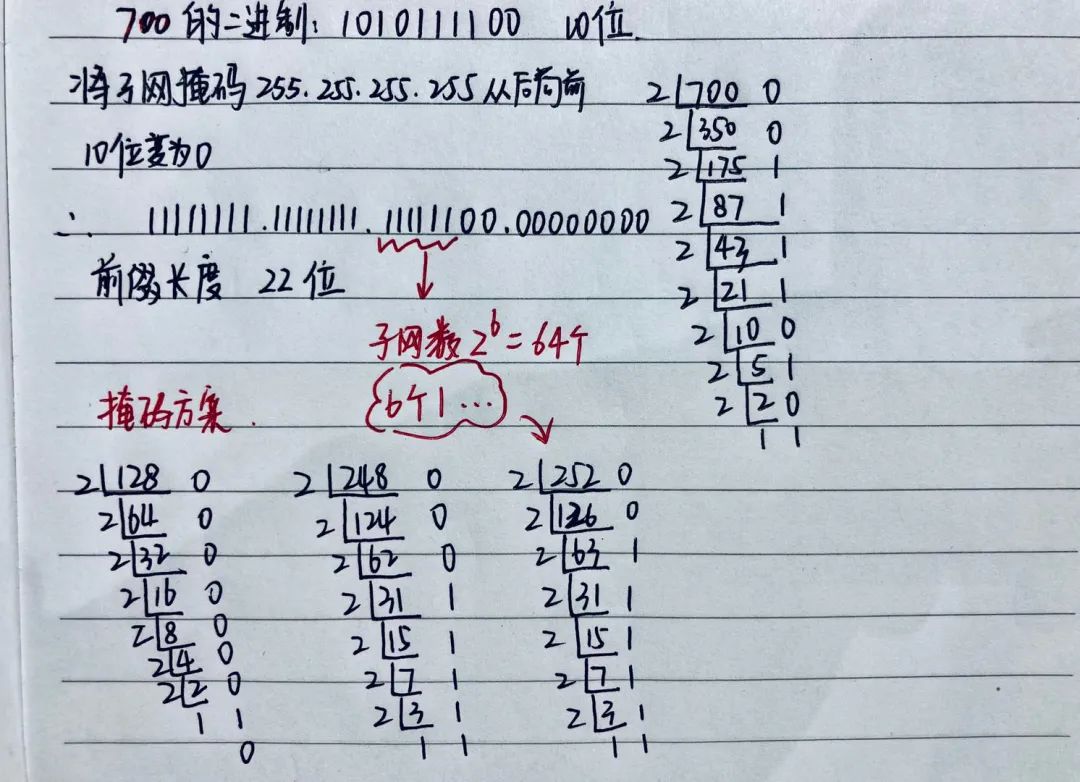 700的二进制: 1010111100 10位.
将子网掩码 255.255.255.255 从后向前
10位变为0
∴ 11111111.11111111.11111100.00000000
前缀长度 22位
子网数 2^6 = 64个
6个1 ...
掩码方案.
2 700 0
2 350 0
2 175 1
2 87 1
2 43 1
2 21 1
2 10 0
2 5 1
2 2 0
1 1
2 128 0
2 64 0
2 32 0
2 16 0
2 8 0
2 4 0
2 2 0
1 1
0
2 248 0
2 124 0
2 62 0
2 31 1
2 15 1
2 7 1
2 3 1
1 1
2 252 0
2 126 0
2 63 1
2 31 1
2 15 1
2 7 1
2 3 1
1 1